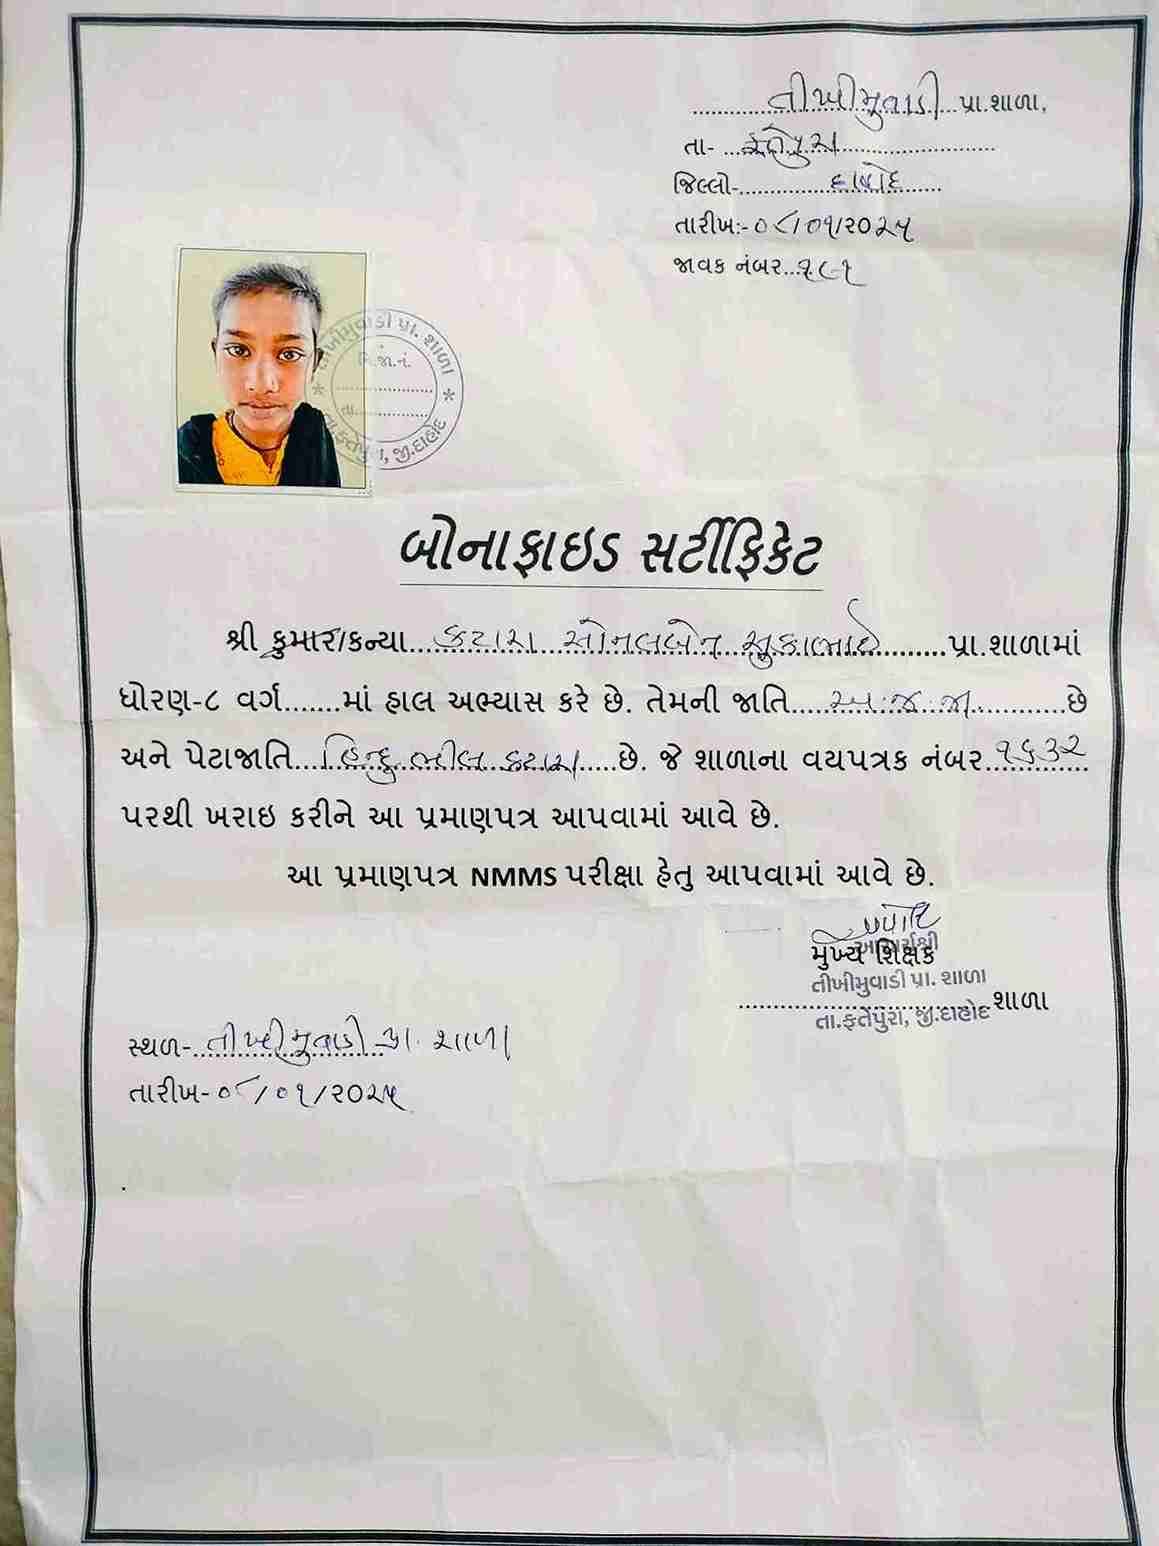 તીખીમુવાડી પ્રા.શાળા,
તા- ફતેપુરા
જિલ્લો- દાહોદ
તારીખ:- ૦૮/૦૧/૨૦૨૫
જાવક નંબર ૧૮૧
તીખીમુવાડી પ્રા. શાળા
જા.નં.
તા.
તા.ફતેપુરા, જી.દાહોદ
બોનાફાઇડ સર્ટીફિકેટ
શ્રી કુમાર/કન્યા કટારા સોનલબેન સુકાભાઈ પ્રા.શાળામાં
ધોરણ-૮ વર્ગ.......માં હાલ અભ્યાસ કરે છે. તેમની જાતિ અ.જ.જા. છે
અને પેટાજાતિ હિન્દુ ભીલ કટારા છે. જે શાળાના વયપત્રક નંબર ૧૬૩૨
પરથી ખરાઇ કરીને આ પ્રમાણપત્ર આપવામાં આવે છે.
આ પ્રમાણપત્ર NMMS પરીક્ષા હેતુ આપવામાં આવે છે.
આચાર્યશ્રી
મુખ્ય શિક્ષક
તીખીમુવાડી પ્રા. શાળા
શાળા
તા.ફતેપુરા, જી.દાહોદ
સ્થળ- તીખીમુવાડી પ્રા. શાળા
તારીખ- ૦૮/૦૧/૨૦૨૫